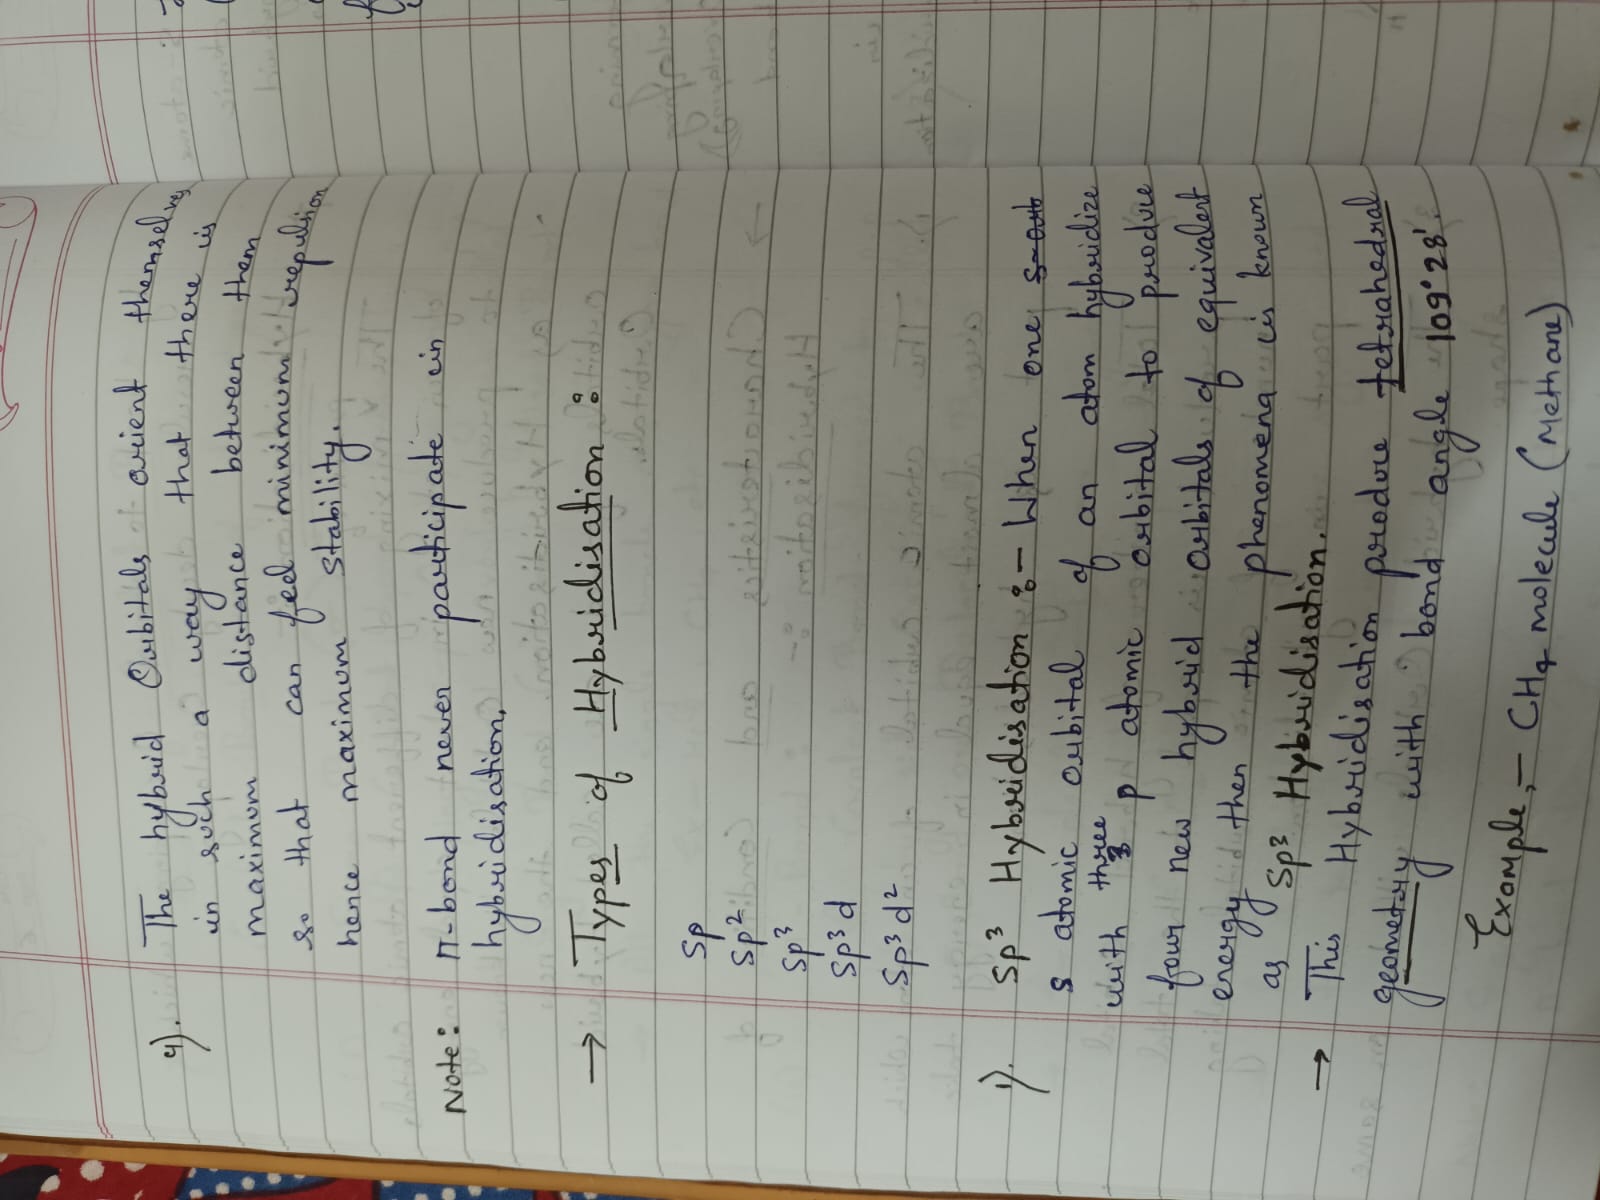 4). The hybrid Orbitals orient themselves
in such a way that there is
maximum distance between them
so that can feel minimum repulsion
hence maximum stability.
Note: π-bond never participate in
hybridisation.
→ Types of Hybridisation :
Sp
Sp²
Sp³
Sp³d
Sp³d²
1). Sp³ Hybridisation :- When one s-orb
s atomic orbital of an atom hybridize
with three 3 p atomic orbital to produce
four new hybrid orbitals of equivalent
energy then the phenomena is known
as Sp³ Hybridisation.
→ This Hybridisation produce tetrahedral
geometry with bond angle 109°28'.
Example,- CH4 molecule (Methane)